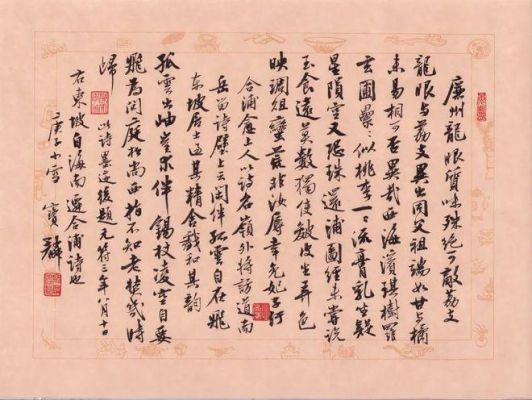 廉州龍眼質味殊絕可敵荔支
龍眼与荔支異出同父祖端如甘与橘
未易相可否異哉西海濱琪樹羅
玄圃纍〻似桃李一一流膏乳坐疑
星隕空又恐珠還浦圖經未嘗說
玉食遠莫數獨使皴皮生弄色
映琱俎蠻荒非汝辱幸免妃子污
合浦愈上人以詩名嶺外將訪道南
岳留詩壁上云閑伴孤雲自在飛
东坡居士過其精舍戲和其韵
孤雲出岫豈求伴錫杖凌空自要
飛為問庭松尚西指不知老奘幾時
歸
此詩墨迹後題元符三年八月十日
右東坡自海南還合浦詩也
庚子小雪